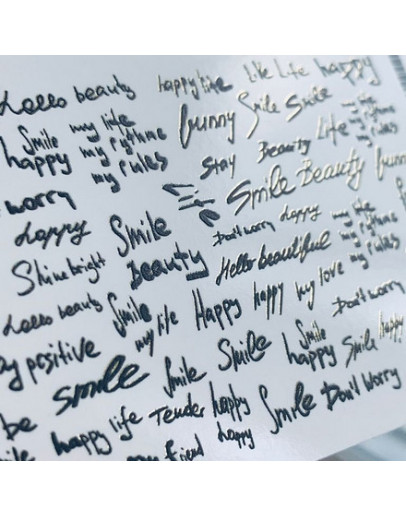 Hello beauty happy life Life Life happy
Smile my life funny Smile Smile my life
happy my rythme Life my rythme
my rules Stay Beauty my rules
worry Life Smile Beauty funn
happy Smile Don't worry happy my life
Beauty my rythme
Shine bright Hello beautiful my rules
Hello beauty Smile my life Happy happy my love
Don't worry
y positive Smile Smile Smile happy Smile happy
smile
be happy life Tender happy Smile Don't Worry
smile friend happy